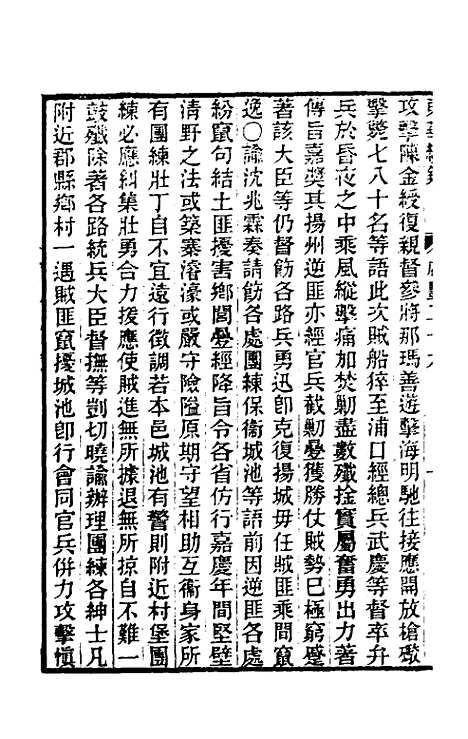 攻擊陳金綬復親督參將那瑪善遊擊海明馳往接應開放槍礮
擊斃七八十名等語此次賊船猝至浦口經總兵武慶等督率弁
兵於昏夜之中乘風縱擊痛加焚勦盡數殲擒實屬奮勇出力著
傳旨嘉獎其揚州逆匪亦經官兵截勦疊獲勝仗賊勢已極窮蹙
著該大臣等仍督飭各路兵勇迅卽克復揚城毋任賊匪乘間竄
逸○諭沈兆霖奏請飭各處團練保衞城池等語前因逆匪各處
紛竄句結土匪擾害鄉閭疊經降旨令各省仿行嘉慶年間堅壁
清野之法或築寨濬濠或嚴守險隘原期守望相助互衞身家所
有團練壯丁自不宜遠行徵調若本邑城池有警則附近村堡團
練必應糾集壯勇合力援應使賊進無所據退無所掠自不難一
鼓殲除著各路統兵大臣督撫等剴切曉諭辦理團練各紳士凡
附近郡縣鄉村一遇賊匪竄擾城池卽行會同官兵倂力攻擊愼